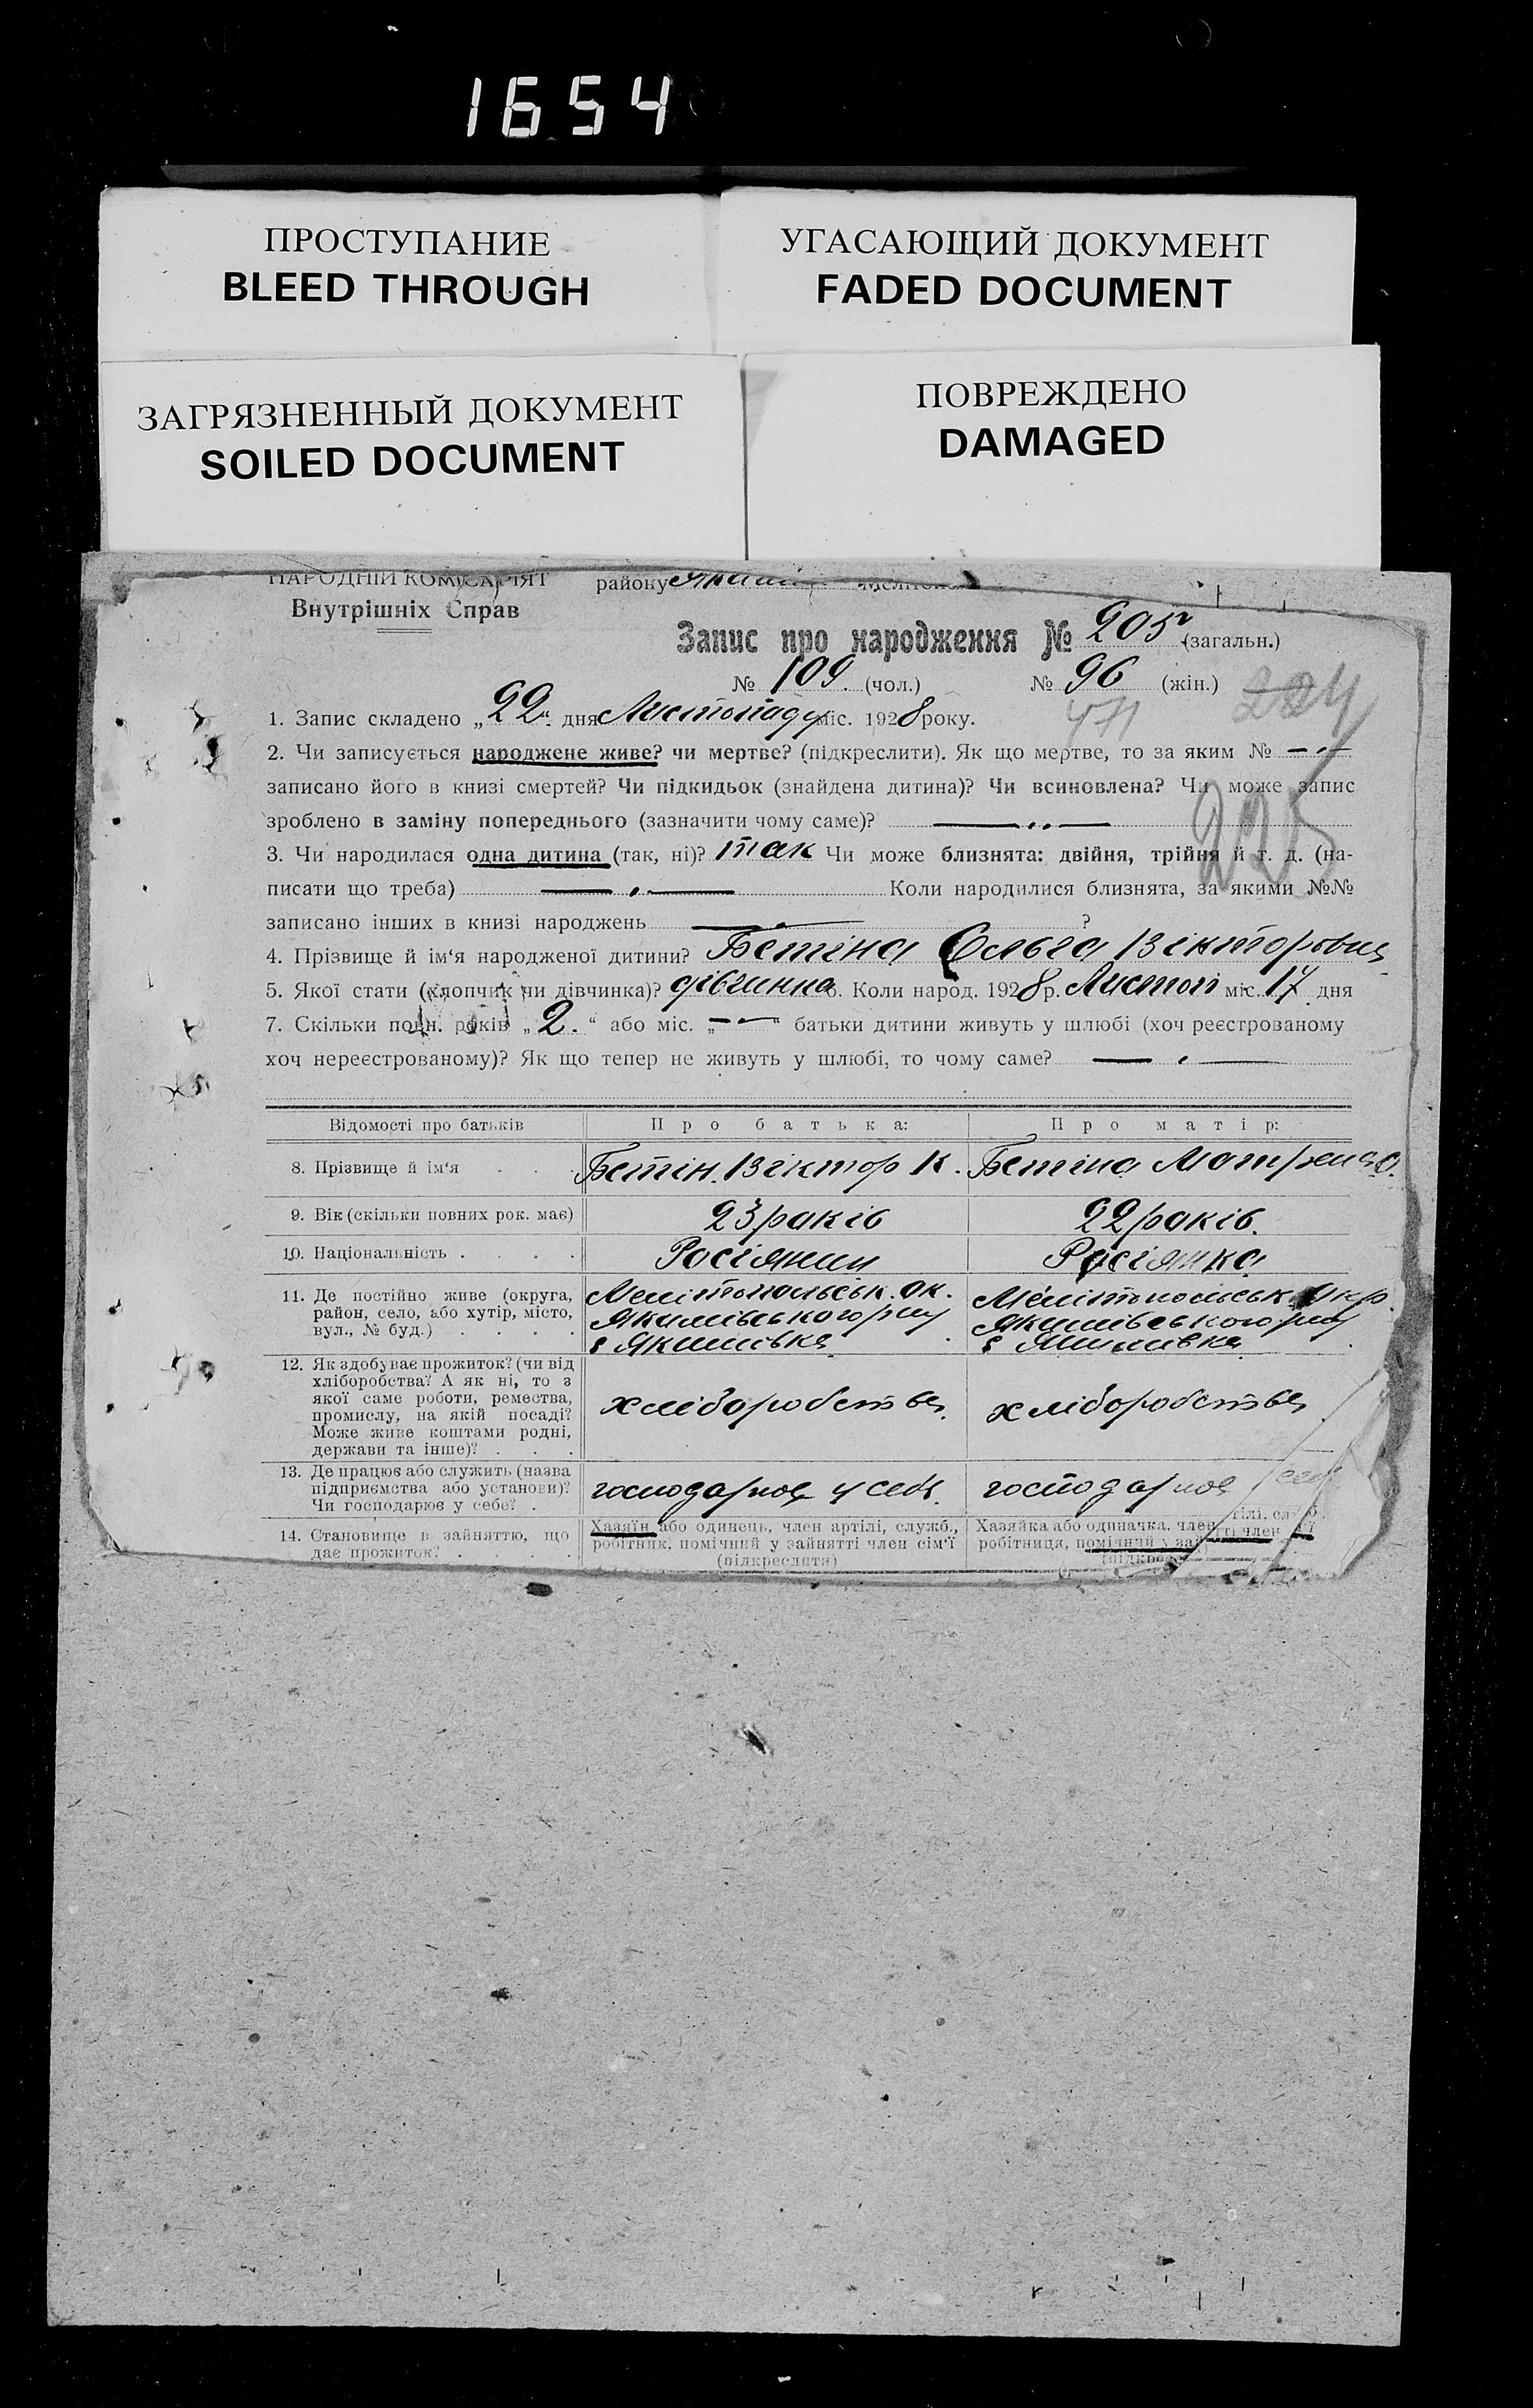 1654
ПРОСТУПАНИЕ
BLEED THROUGH
УГАСАЮЩИЙ ДОКУМЕНТ
FADED DOCUMENT
ЗАГРЯЗНЕННЫЙ ДОКУМЕНТ
SOILED DOCUMENT
ПОВРЕЖДЕНО
DAMAGED
НАРОДНІЙ КОМІСАРІЯТ району
Внутрішніх Справ
Запис про народження № 205 (загальн.)
№ 109 (чол.) № 96 (жін.) 224
471
1. Запис складено „22“ дня Листопаду міс. 1928 року.
2. Чи записується народжене живе? чи мертве? (підкреслити). Як що мертве, то за яким № —
записано його в книзі смертей? Чи підкидьок (знайдена дитина)? Чи всиновлена? Чи може запис
зроблено в заміну попереднього (зазначити чому саме)? —
225
3. Чи народилася одна дитина (так, ні)? так Чи може близнята: двійня, трійня й т. д. (на-
писати що треба) — Коли народилися близнята, за якими №№
записано інших в книзі народжень — ?
4. Прізвище й ім‘я народженої дитини? Бетіна Ольга Вікторовна
5. Якої стати (хлопчик чи дівчинка)? дівчинка 6. Коли народ. 1928 р. Листоп міс. 17 дня
7. Скільки повн. років „2.“ або міс. „—“ батьки дитини живуть у шлюбі (хоч реєстрованому
хоч нереєстрованому)? Як що тепер не живуть у шлюбі, то чому саме? —
Відомості про батьків Про батька: Про матір:
8. Прізвище й ім‘я . . . Бетін Віктор К. Бетіна Матрена О.
9. Вік (скільки повних рок. має) 23 років 22 років.
10. Національність . . . . Росіянин Росіянка
11. Де постійно живе (округа, Мелітопольськ. ок. Мелітопольськ. окр.
район, село, або хутір, місто, Якимівського р-ну Якимівського р-ну
вул., № буд.) . . . . с Якимівка с Якимівка
12. Як здобуває прожиток? (чи від
хліборобства? А як ні, то з
якої саме роботи, ремества, хліборобства хліборобства
промислу, на якій посаді?
Може живе коштами родні,
держави та інше)? . . .
13. Де працює або служить (назва
підприємства або установи)? господарює у себе. господарює
Чи господарює у себе? .
14. Становище в зайняттю, що Хазяїн або одинець, член артілі, служб., Хазяйка або одиначка, член
дає прожиток? . . . . робітник, помічний у зайнятті член сім‘ї робітниця, помічний у зай
(підкреслити)